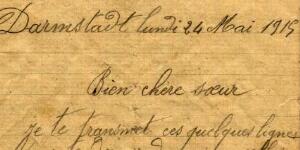 Darmstadt lundi 24 Mai 1915
Bien chère sœur
je te transmet ces quelques lignes